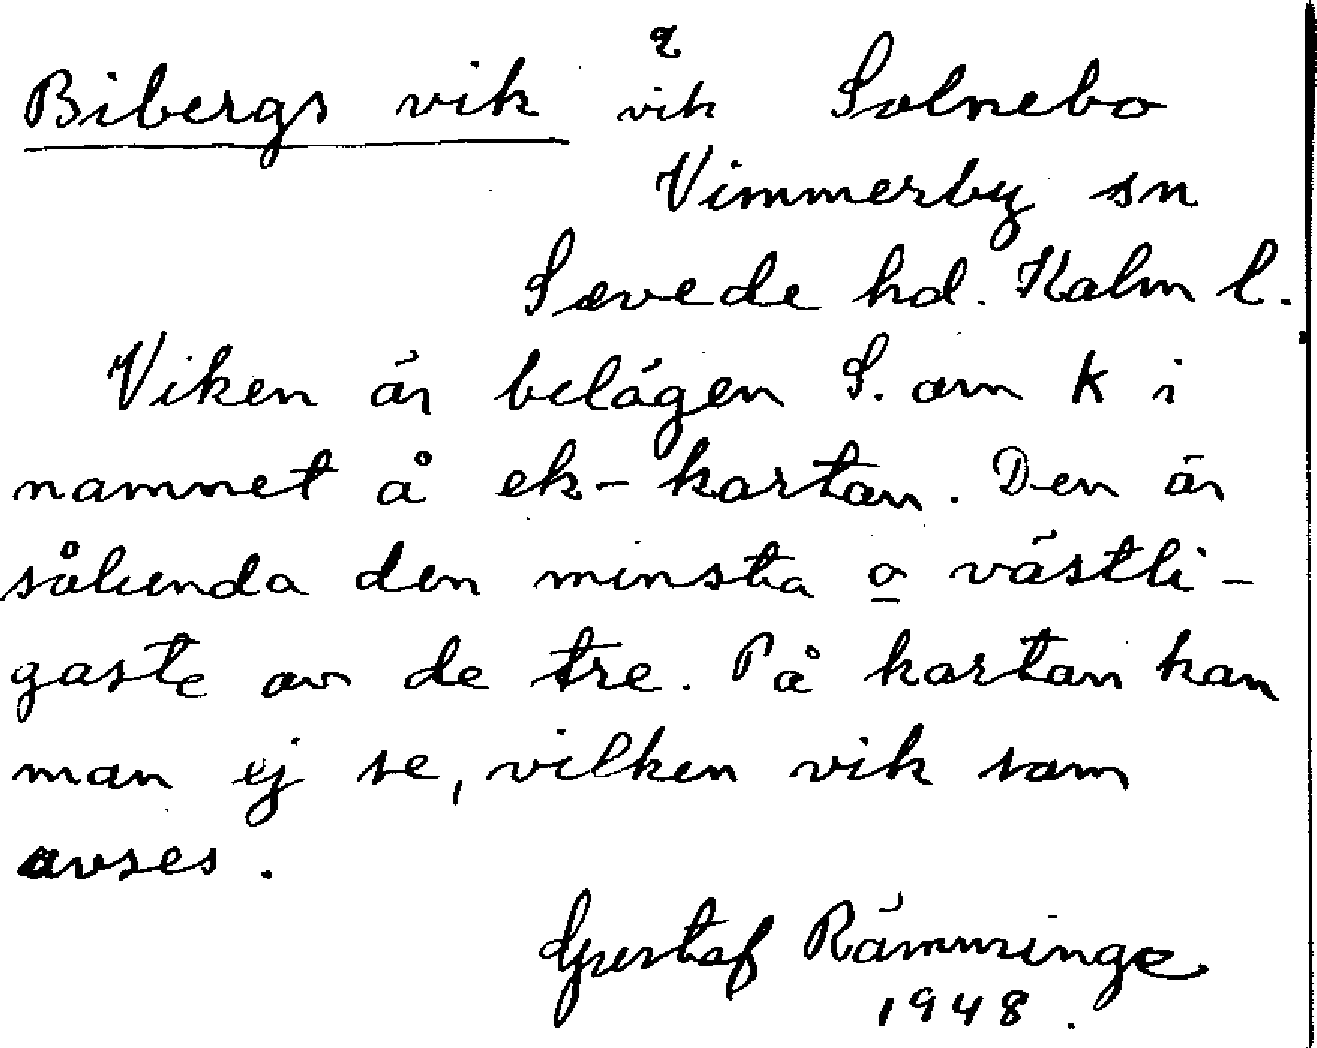 Bibergs vik vik Solnebo
Vimmerby sn
Sevede hd. Kalm l.
Viken är belägen S. om K i
namnet å ek-kartan. Den är
sålunda den minsta o västli-
gaste av de tre. På kartan kan
man ej se, vilken vik som
avses.
Gustaf Rämminge
1948.